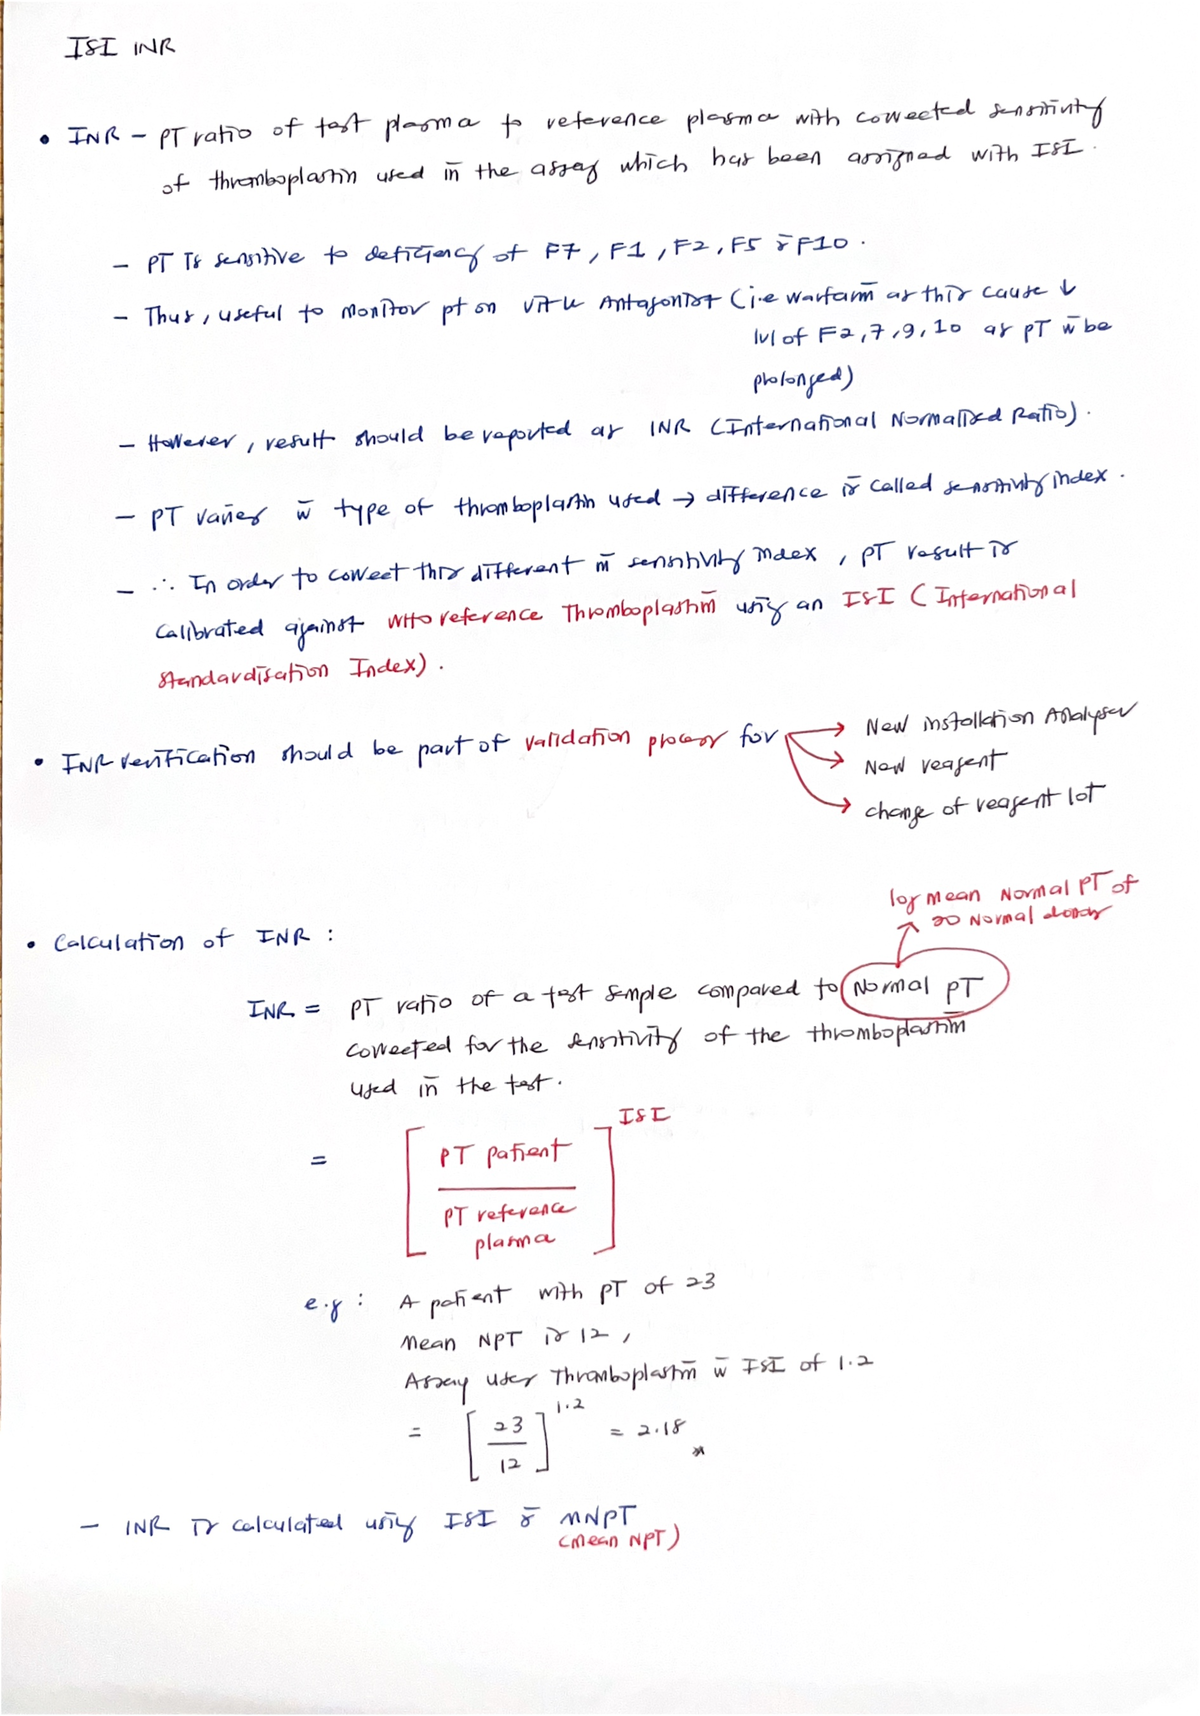 ISI INR
• INR - PT ratio of test plasma to reference plasma with corrected sensitivity
of thromboplastin used in the assay which has been assigned with ISI.
- PT is sensitive to deficiency of F7, F1, F2, F5 & F10.
- Thus, useful to monitor pt on vit K Antagonist (i.e warfarin as this cause ↓
lvl of F2,7,9,10 as PT w̄ be
prolonged)
- However, result should be reported as INR (International Normalised Ratio).
- PT varies w̄ type of thromboplastin used → difference is called sensitivity index.
- ∴ In order to correct this different in sensitivity index, PT result is
calibrated against WHO reference Thromboplastin using an ISI (International
Standardisation Index).
• INR verification should be part of validation process for → New installation Analyser
→ New reagent
→ change of reagent lot
log mean Normal PT of
20 Normal donor
• Calculation of INR :
INR = PT ratio of a test sample compared to Normal PT
corrected for the sensitivity of the thromboplastin
used in the test.
= [ PT patient / PT reference plasma ] ISI
e.g : A patient with PT of 23
Mean NPT is 12,
Assay uses Thromboplastin w̄ ISI of 1.2
= [ 23 / 12 ] 1.2 = 2.18
- INR is calculated using ISI & MNPT
(mean NPT)